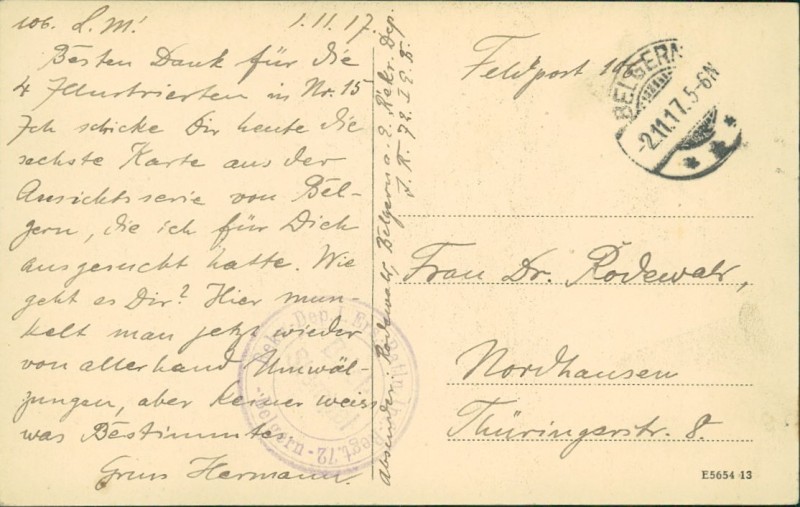 106. L. M! 1. 11. 17.
Besten Dank für die
4 Illustrierten in Nr. 15
Ich schicke Dir heute die
sechste Karte aus der
Ansichtsserie von Bel-
gern, die ich für Dich
ausgesucht hatte. Wie
geht es Dir? Hier mun-
kelt man jetzt wieder
von allerhand Umwäl-
zungen, aber keiner weiss
was Bestimmtes
Gruss Hermann.
Absender: Rodewald, Belgern a. E. Rekr. Dep.
I. R. 72. I E. B.
Feldpost
BELGERN
-2.11.17.5-6N
Frau Dr. Rodewald,
Nordhausen
Thüringerstr. 8.
Rekr. Dep. I. Ers. Batln. Inf. Regt. 72
-Belgern-
E5654 13